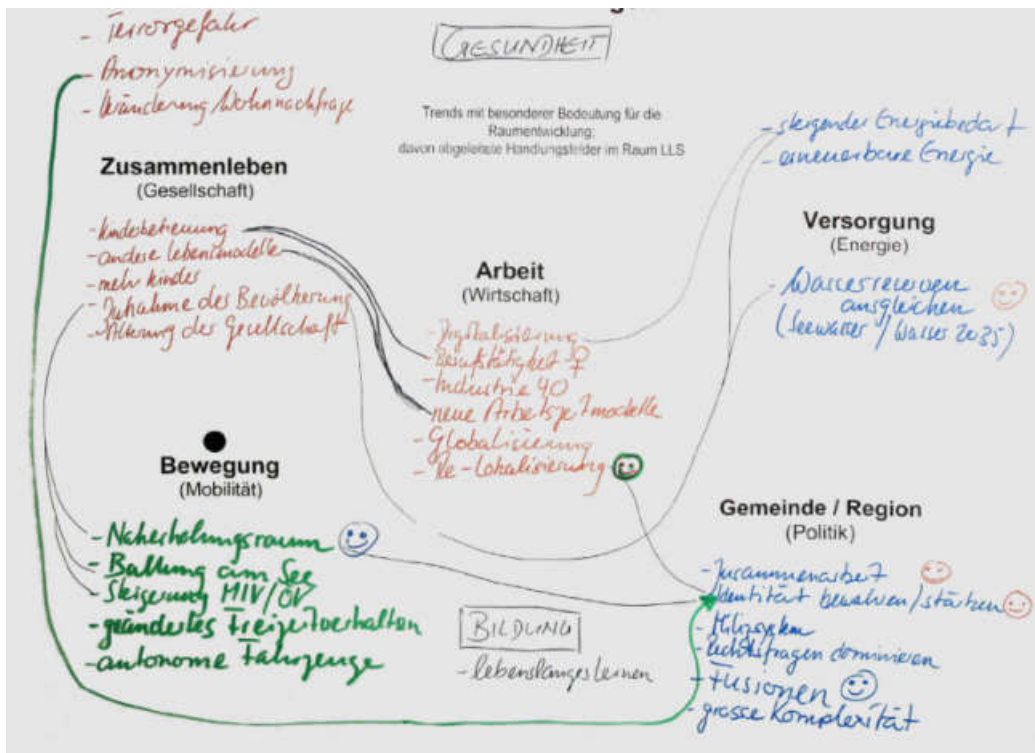 - Terrorgefahr
- Anonymisierung
- Veränderung Wohnnachfrage
GESUNDHEIT
Trends mit besonderer Bedeutung für die
Raumentwicklung;
davon abgeleitete Handlungsfelder im Raum LLS
- steigender Energiebedarf
- erneuerbare Energie
Zusammenleben
(Gesellschaft)
- Kinderbetreuung
- andere Lebensmodelle
- mehr Kinder
- Zunahme der Bevölkerung
- Alterung der Gesellschaft
Arbeit
(Wirtschaft)
- Digitalisierung
- Berufstätigkeit ♀
- Industrie 4.0
- neue Arbeitszeitmodelle
- Globalisierung
- Re-Lokalisierung
Versorgung
(Energie)
- Wasserreserven
ausgleichen
(Seewasser / Wasser 2035)
Bewegung
(Mobilität)
- Naherholungsraum
- Ballung am See
- Steigerung MIV/ÖV
- geändertes Freizeitverhalten
- autonome Fahrzeuge
BILDUNG
- lebenslanges lernen
Gemeinde / Region
(Politik)
- Zusammenarbeit
- Identität bewahren/stärken
- Milizsystem
- Rechtsfragen dominieren
- Fusionen
- grosse Komplexität